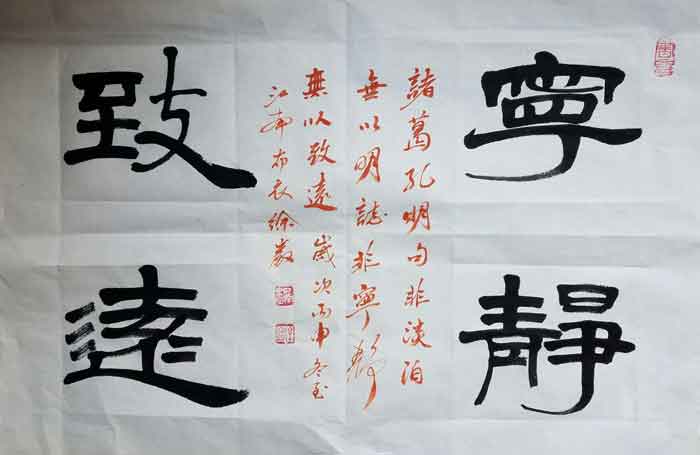 寧靜
諸葛孔明句非淡泊
無以明誌非寧靜
無以致遠 歲次丙申冬至
江南布衣徐
致遠